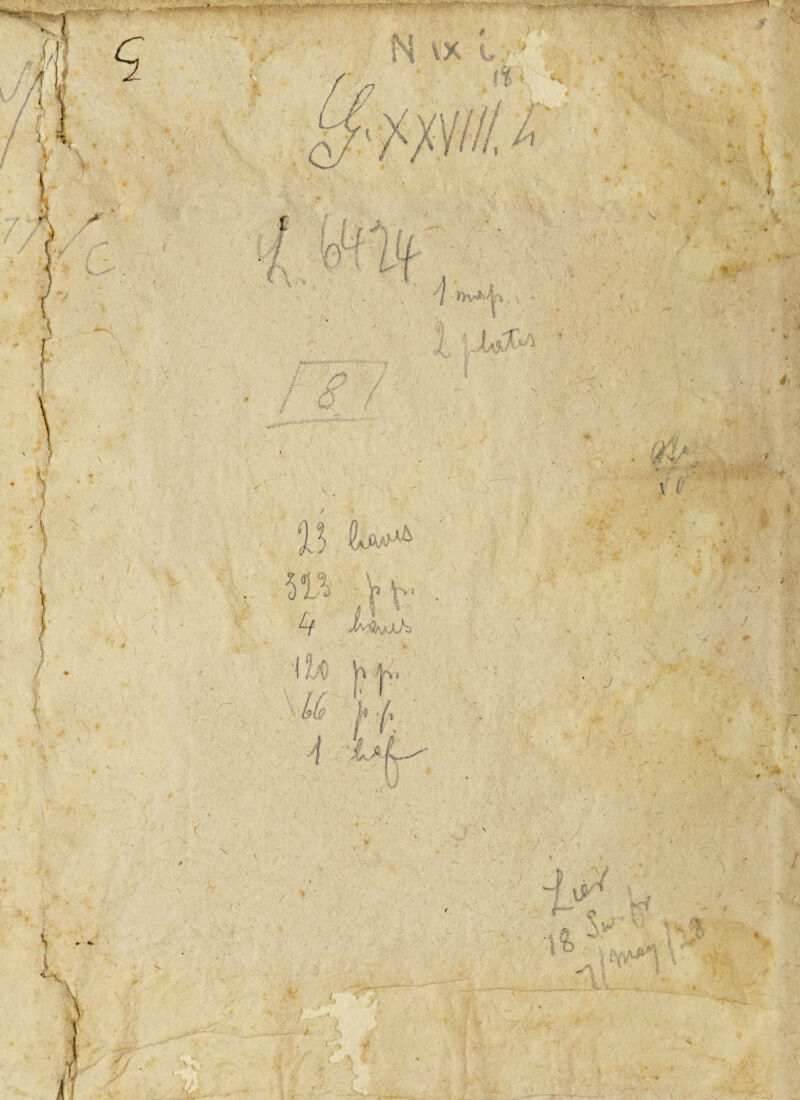 N ix i
18
G. XXVIII. h
L. 6424
1 map.
2 plates
/ 8 /
23 leaves
323 pp.
4 leaves
120 pp.
66 pp.
1 leaf
Lier
18 Sw. fr
7/May/28